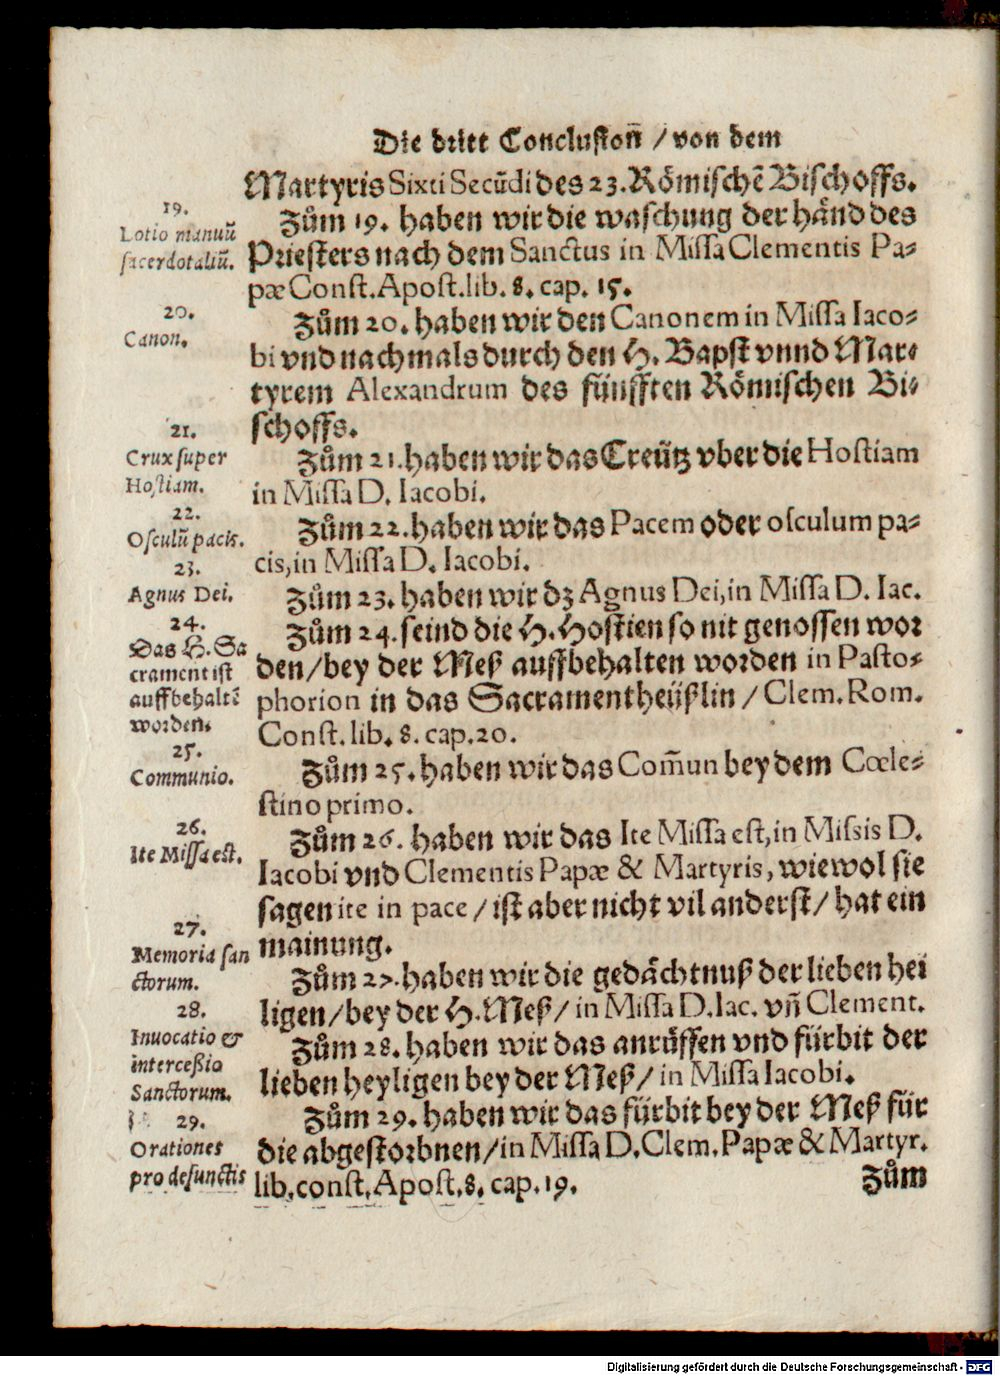 Die dritt Conclusion̄ / von dem
Martyris Sixti Secūdi des 23. Römischē Bischoffs.
19.
Lotio manuū
sacerdotaliū.
Zům 19. haben wir die waschung der händ des
Priesters nach dem Sanctus in Missa Clementis Pa-
pæ Const. Apost. lib. 8. cap. 15.
20.
Canon.
Zům 20. haben wir den Canonem in Missa Iaco-
bi vnd nachmals durch den H. Bapst vnnd Mar-
tyrem Alexandrum des fünfften Römischen Bi-
schoffs.
21.
Crux super
Hostiam.
Zům 21. haben wir das Creütz vber die Hostiam
in Missa D. Iacobi.
22.
Osculū pacis.
Zům 22. haben wir das Pacem oder osculum pa-
cis, in Missa D. Iacobi.
23.
Agnus Dei.
Zům 23. haben wir dz Agnus Dei, in Missa D. Iac.
24.
Das H. Sa
crament ist
auffbehaltē
worden.
Zům 24. seind die H. Hostien so nit genossen wor
den / bey der Meß auffbehalten worden in Pasto-
phorion in das Sacramentheüßlin / Clem. Rom.
Const. lib. 8. cap. 20.
25.
Communio.
Zům 25. haben wir das Com̄un bey dem Cœle-
stino primo.
26.
Ite Missa est.
Zům 26. haben wir das Ite Missa est, in Missis D.
Iacobi vnd Clementis Papæ & Martyris, wiewol sie
sagen ite in pace / ist aber nicht vil anderst / hat ein
mainung.
27.
Memoria san
ctorum.
Zům 27. haben wir die gedächtnuß der lieben hei
ligen / bey der H. Meß / in Missa D. Iac. vn̄ Clement.
28.
Inuocatio &
interceßio
Sanctorum.
Zům 28. haben wir das anrůffen vnd fürbit der
lieben heyligen bey der Meß / in Missa Iacobi.
29.
Orationes
pro defunctis
Zům 29. haben wir das fürbit bey der Meß für
die abgestorbnen / in Missa D. Clem. Papæ & Martyr.
lib. const. Apost. 8. cap. 19.
Zům
Digitalisierung gefördert durch die Deutsche Forschungsgemeinschaft - DFG